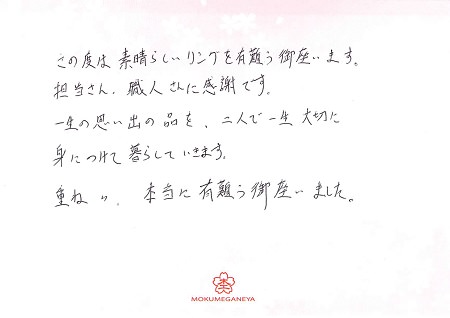 この度は素晴らしいリングを有難う御座います。
担当さん、職人さんに感謝です。
一生の思い出の品を、二人で一生大切に
身につけて暮らしていきます。
重ね〃、本当に有難う御座いました。
MOKUMEGANEYA